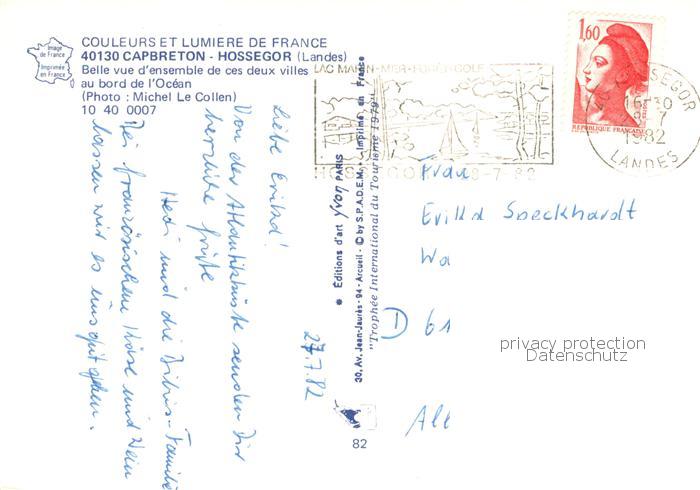 Image
de France
Imprimée
en France
COULEURS ET LUMIERE DE FRANCE
40130 CAPBRETON - HOSSEGOR (Landes)
Belle vue d'ensemble de ces deux villes
au bord de l'Océan
(Photo : Michel Le Collen)
10 40 0007
Von der Atlantikküste senden Dir
herzliche Grüße
Hedi und die
Familie
Bei französischem Käse und Wein
lassen wir es uns gut gehen.
27.7.82
● Éditions d'art yvon PARIS
30, Av. Jean-Jaurès - 94 - Arcueil - © by S.P.A.D.E.M. - Imprimé en France
"Trophée International du Tourisme 1979"
82
LAC MARIN-MER-FORÊT-GOLF
HOSSEGOR
28-7-82
1,60
REPUBLIQUE FRANÇAISE
HOSSEGOR
1982
LANDES
Frau
Speckhardt
D 61
privacy protection
Datenschutz